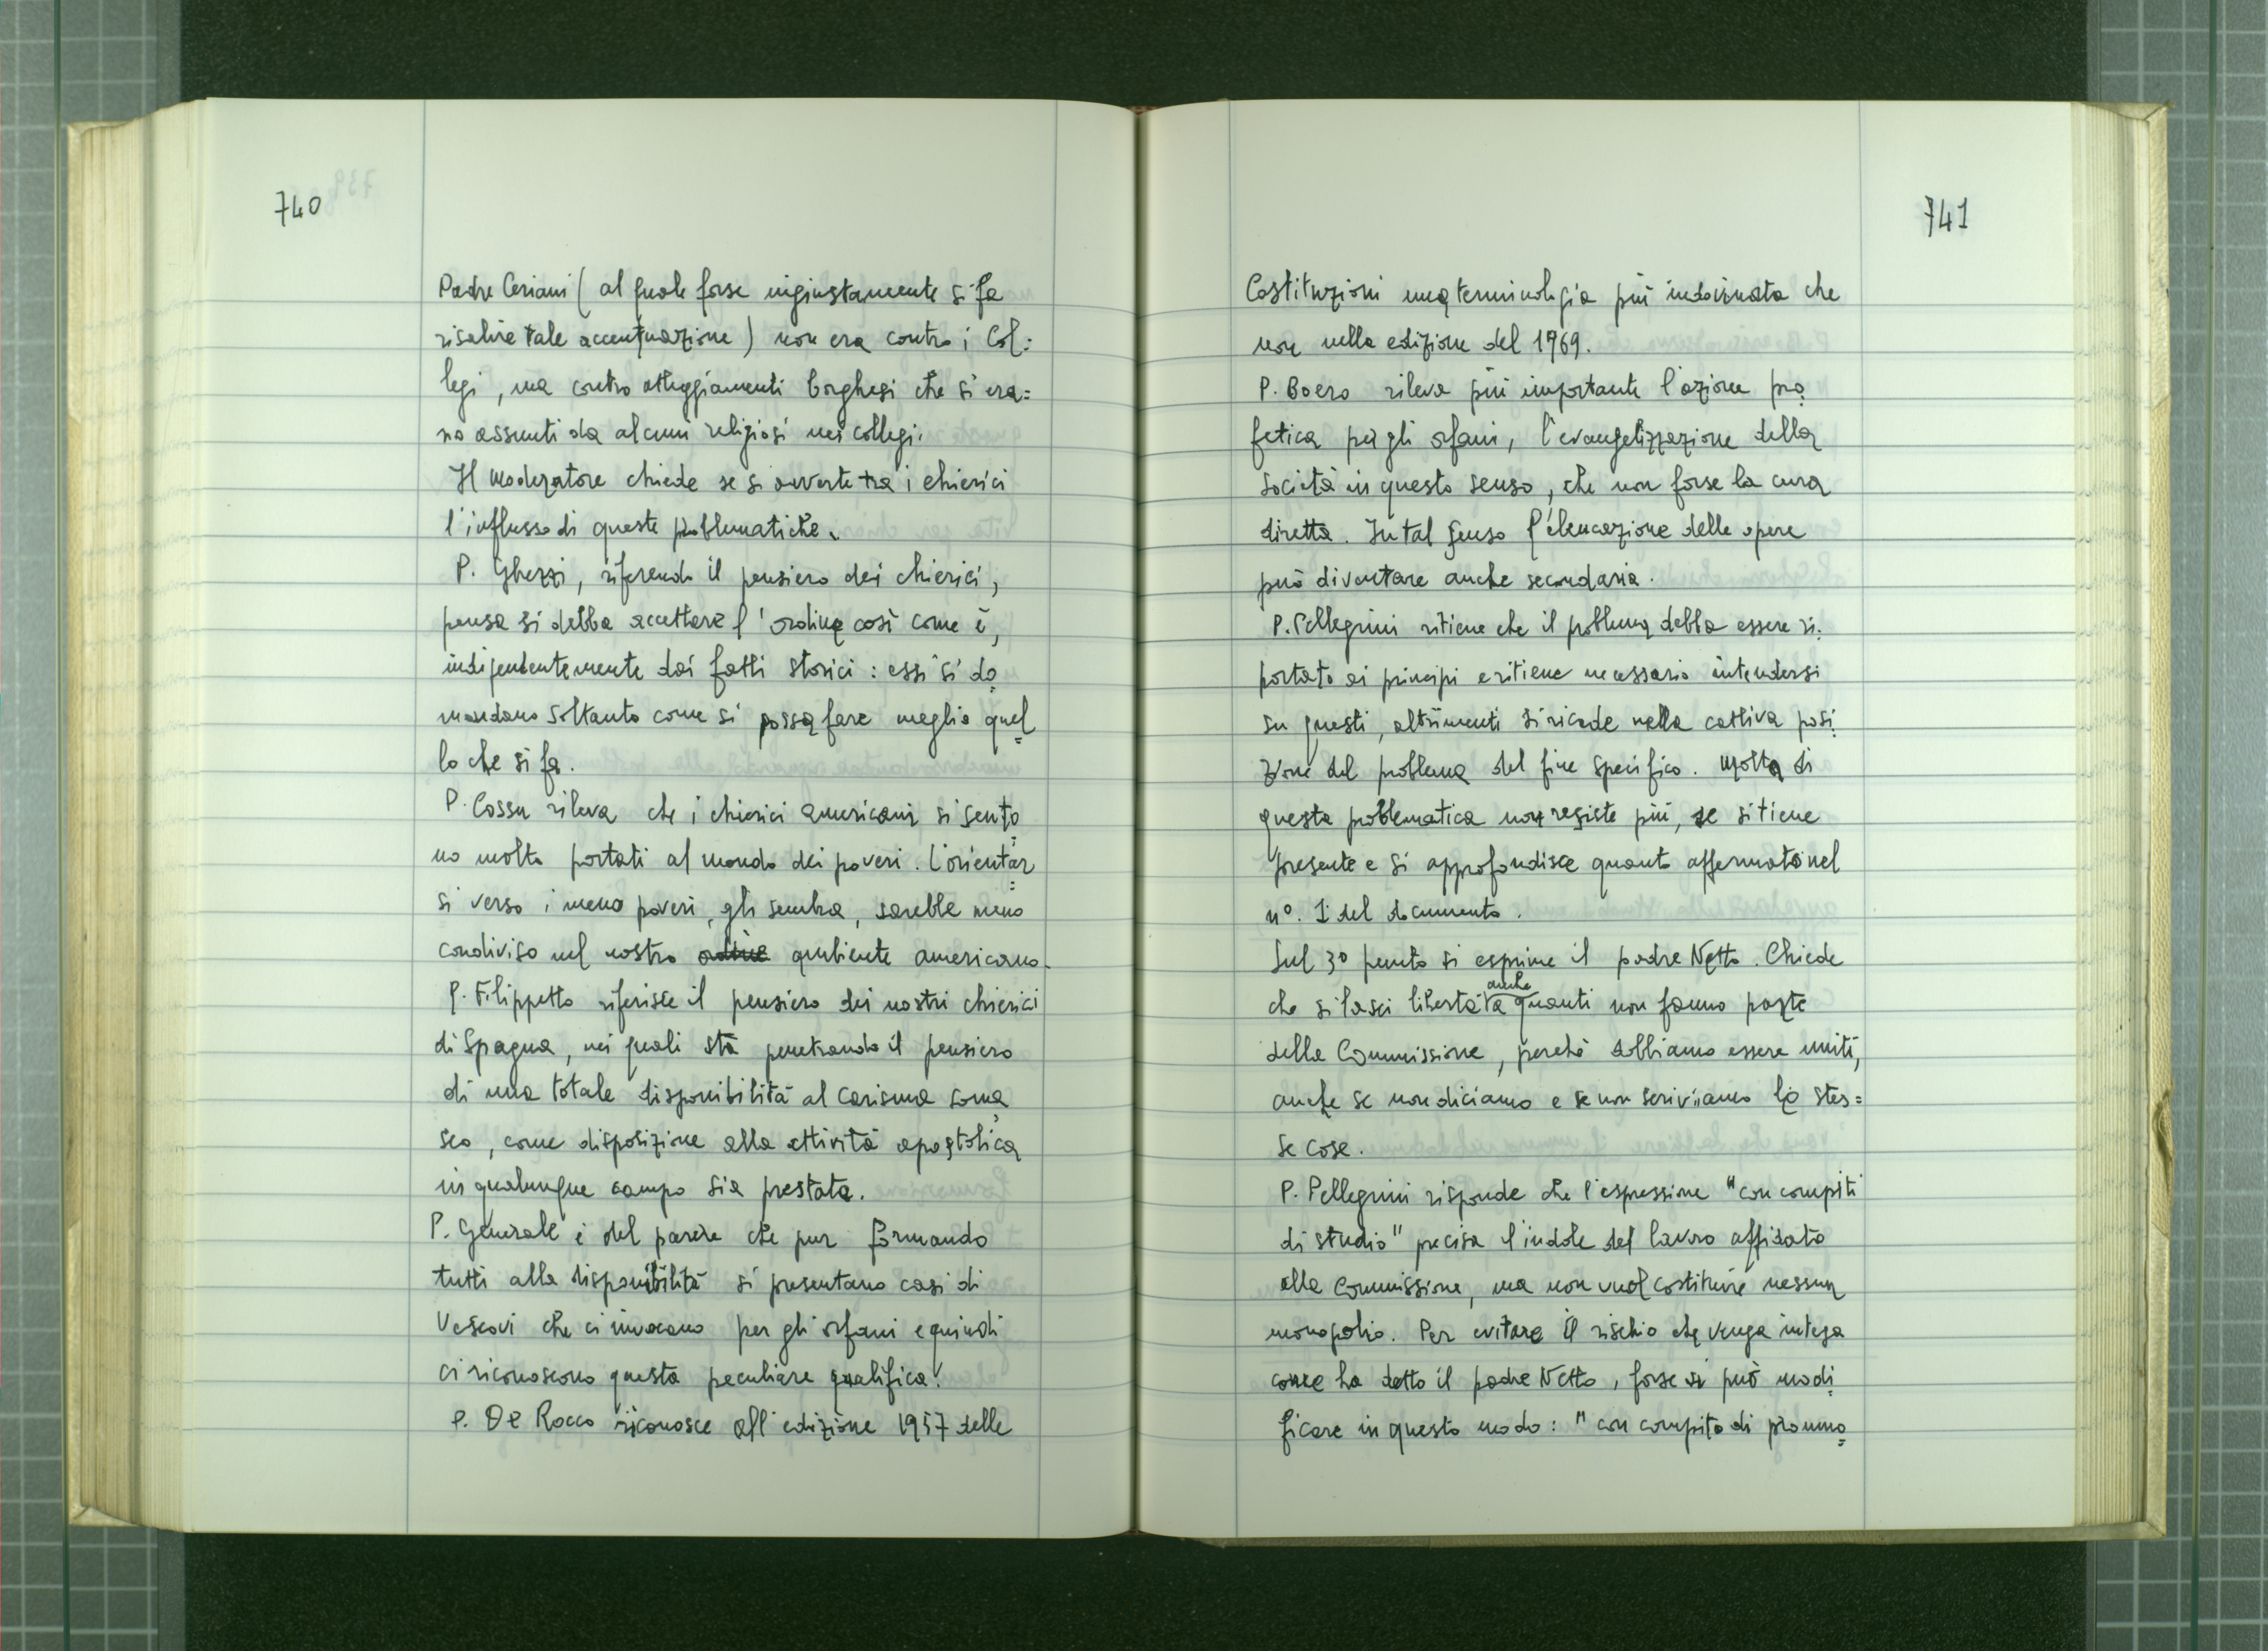 740
Padre Ceriani ( al quale forse ingiustamente si fa
risalire tale accentuazione ) non era contro i Col:
legi , ma contro atteggiamenti borghesi che si era=
no assunti da alcuni religiosi nei collegi.
Il Moderatore chiede se si avverte tra i chierici
l'influsso di queste problematiche.
P. Ghezzi, riferendo il pensiero dei chierici,
pensa si debba accettare l'ordine così come è,
indipendentemente dai fatti storici : essi si do
mandano soltanto come si possa fare meglio quel
lo che si fa.
P. Cossu rileva che i chierici americani si sento
no molto portati al mondo dei poveri. L'orientar
si verso i meno poveri, gli sembra, sarebbe meno
condiviso nel nostro ambiente americano.
P. Filippetto riferisce il pensiero dei nostri chierici
di Spagna, nei quali sta penetrando il pensiero
di una totale disponibilità al carisma soma
sco, come disposizione alla attività apostolica
in qualunque campo sia prestata.
P. Generale è del parere che pur formando
tutti alla disponibilità si presentano casi di
Vescovi che ci invocano per gli orfani e quindi
ci riconoscono questa peculiare qualifica.
P. De Rocco riconosce all'edizione 1957 delle
741
Costituzioni una terminologia più indovinata che
non nella edizione del 1969.
P. Boero rileva più importante l'azione pro
fetica per gli orfani, l'evangelizzazione della
società in questo senso, che non forse la cura
diretta. In tal senso l'elencazione delle opere
può diventare anche secondaria.
P. Pellegrini ritiene che il problema debba essere ri
portato ai principi e ritiene necessario intendersi
su questi, altrimenti si ricade nella cattiva posi
zione del problema del fine specifico. Molta di
questa problematica non resiste più, se si tiene
presente e si approfondisce quanto affermato nel
n°. 1 del documento.
Sul 3° punto si esprime il padre Netto. Chiede
che si lasci libertà anche a quanti non fanno parte
della Commissione, perché dobbiamo essere uniti,
anche se non diciamo e se non scriviamo le stes=
se cose.
P. Pellegrini risponde che l'espressione "con compiti
di studio" precisa l'indole del lavoro affidato
alla Commissione, ma non vuol costituire nessun
monopolio. Per evitare il rischio che venga intesa
come ha detto il padre Netto, forse si può modi
ficare in questo modo : " con compito di promuo